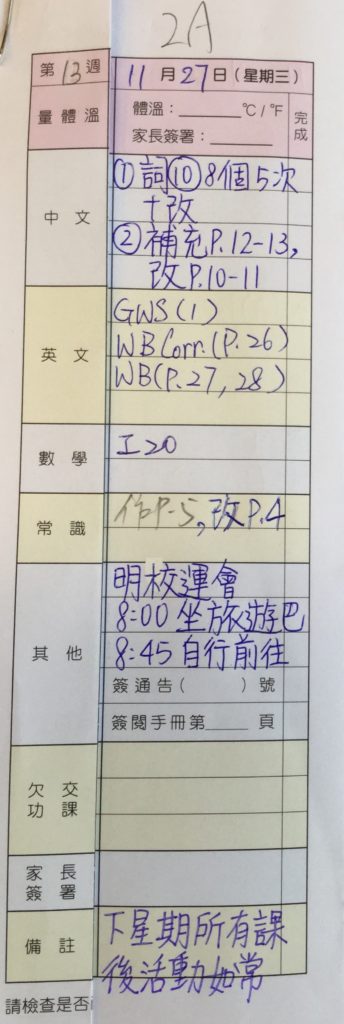 2A
第13週 11月27日(星期三)
量體溫 體溫:______℃/℉ 完成
家長簽署:______
中文 ①詞⑩8個5次
十改
②補充P.12-13,
改P.10-11
英文 GWS(1)
WB Corr.(P.26)
WB(P.27,28)
數學 工20
常識 作P-5,改P.4
其他 明校運會
8:00坐旅遊巴
8:45自行前往
簽通告( )號
簽閱手冊第____頁
欠交功課
家長簽署
備註 下星期所有課
後活動如常
請檢查是否